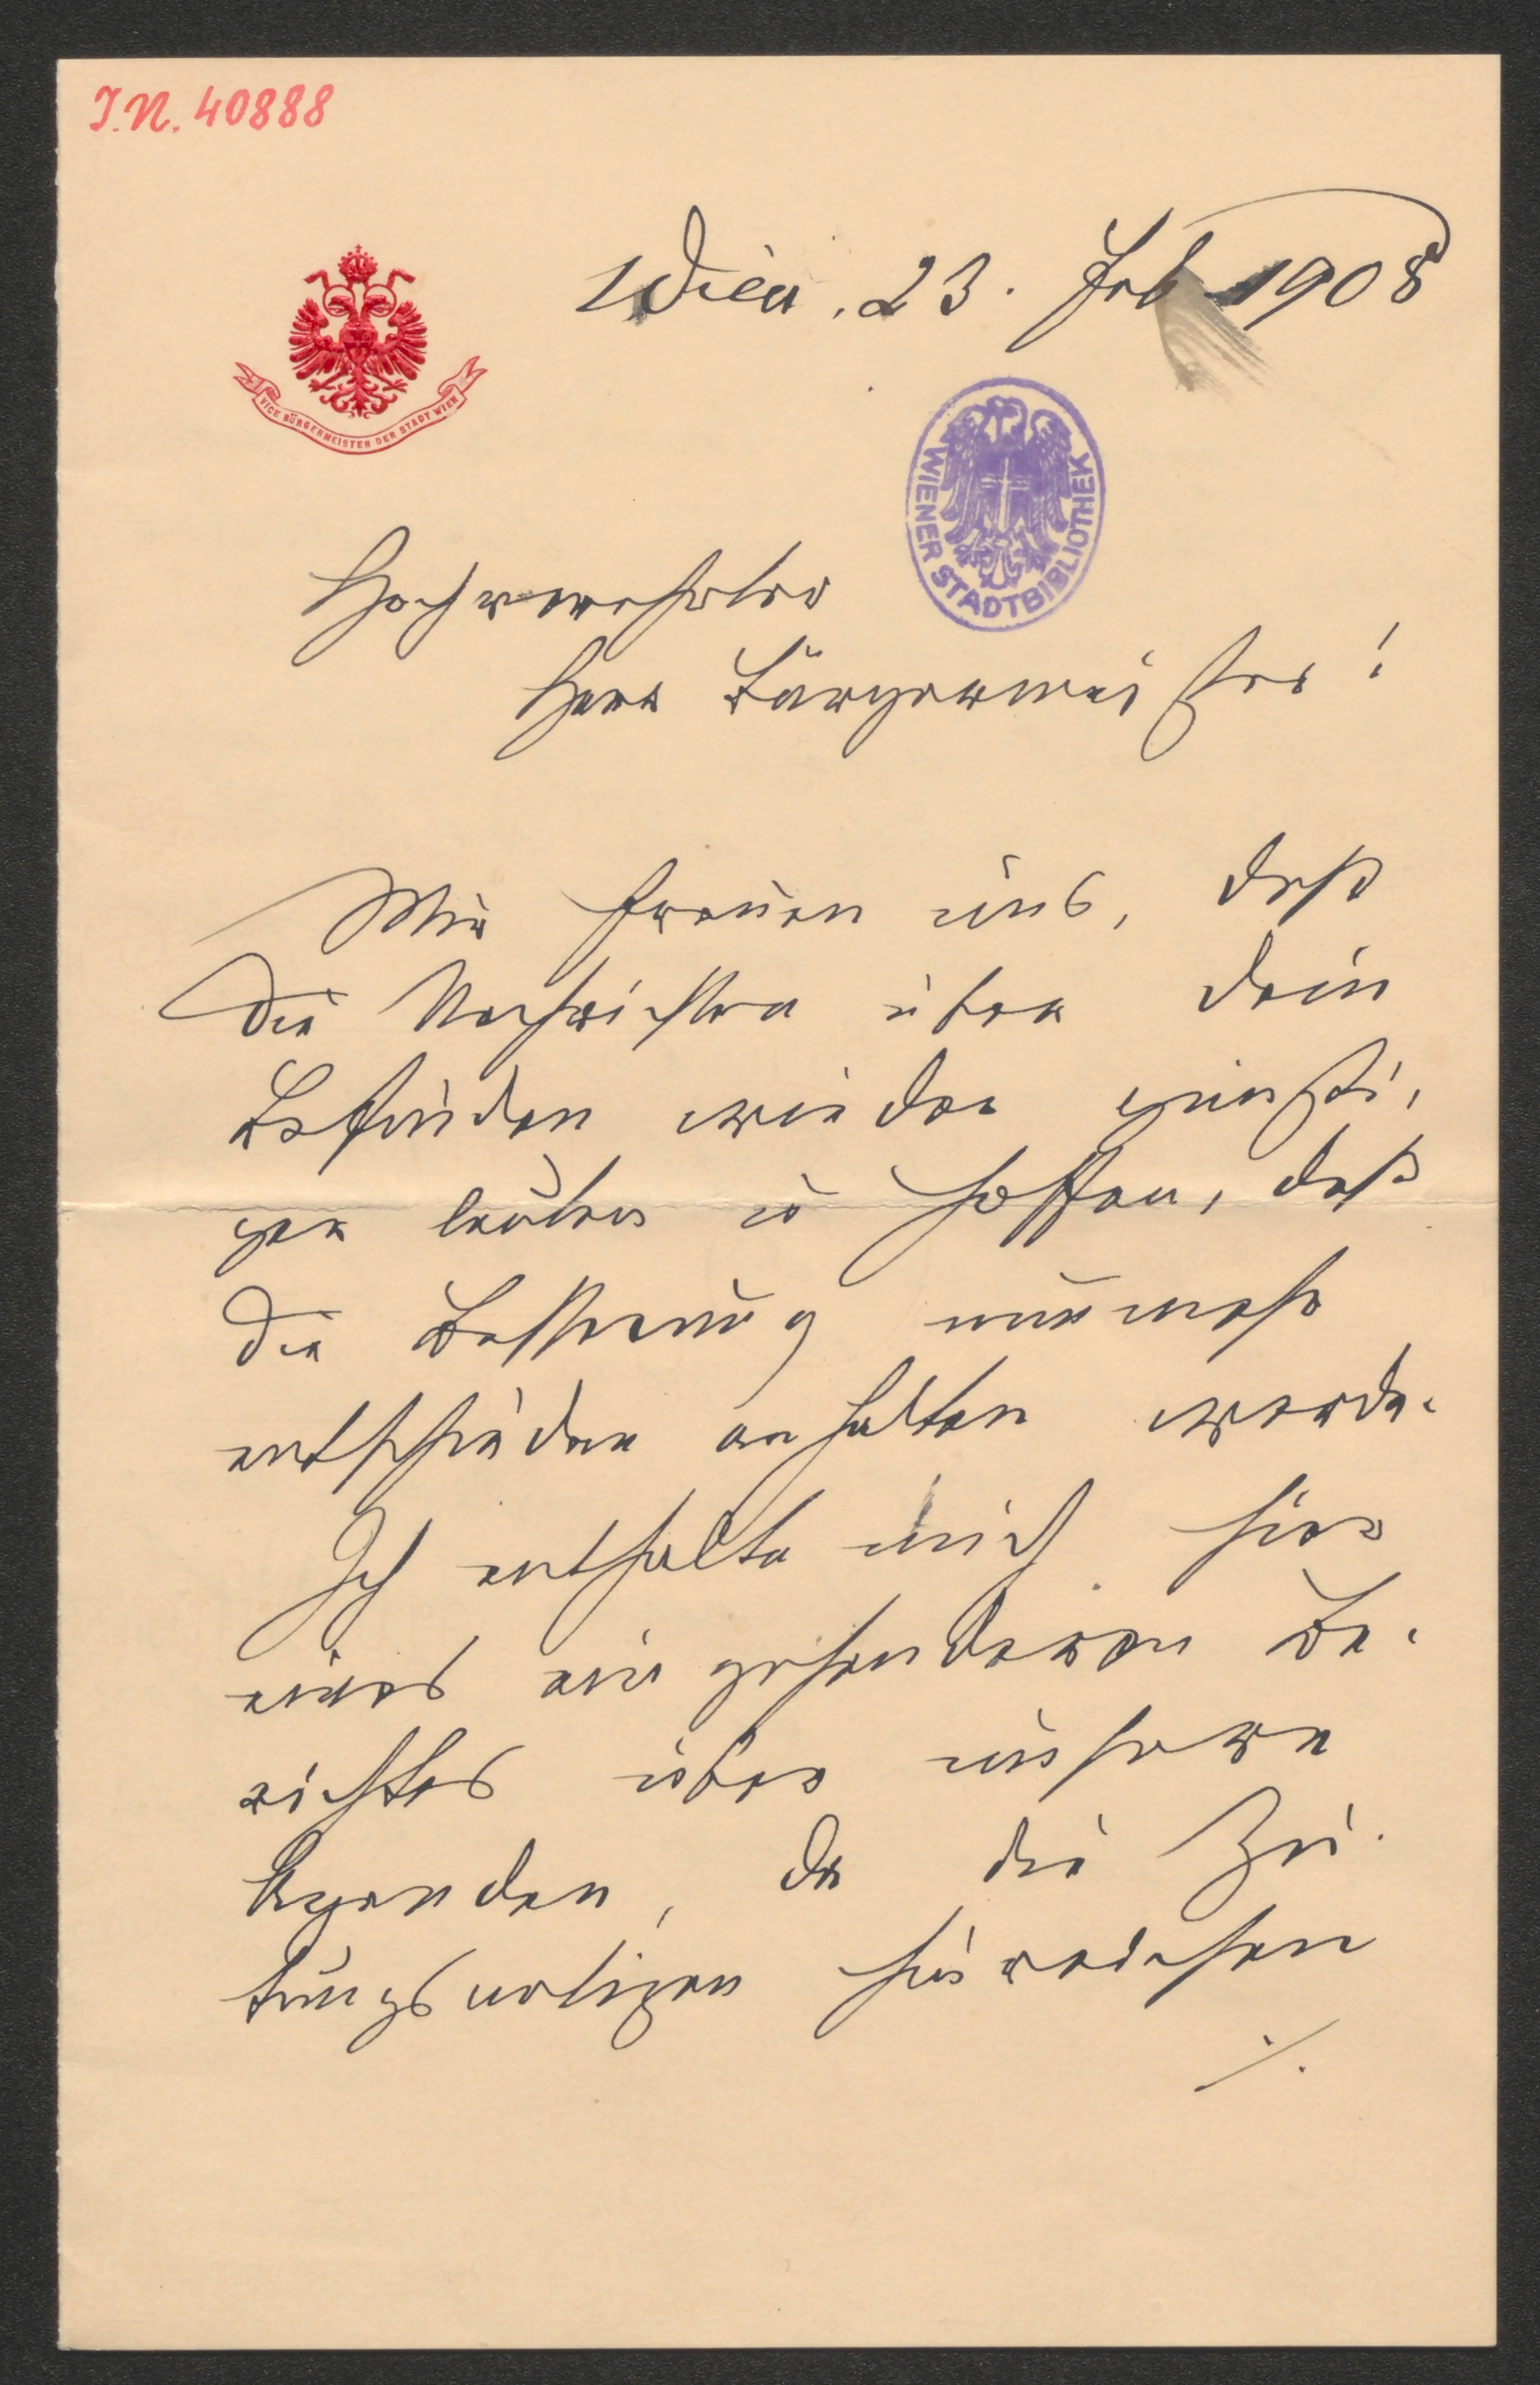 I.N. 40888
Wien, 23. Feb 1908
VICE BÜRGERMEISTER DER STADT WIEN
WIENER STADTBIBLIOTHEK
Hochverehrter
Herr Bürgermeister!
Wir freuen uns, daß
die Nachrichten über Dein
Befinden wieder günsti-
ger lauten u hoffen, daß
die Besserung nunmehr
entschieden anhalten werde.
Ich enthalte mich hier
eines eingehenderen Be-
richtes über unsere
Agenden, da die Zei-
tungsnotizen hinreichen
./.